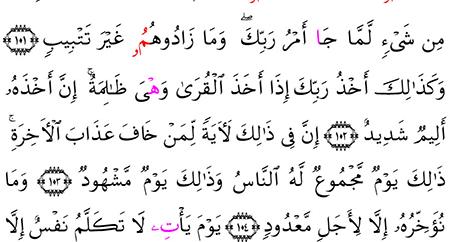 مِن شَيْءٍ لَّمَّا جَا أَمْرُ رَبِّكَ ۖ وَمَا زَادُوهُمُۥ غَيْرَ تَتْبِيبٍ ١٠١
وَكَذَٰلِكَ أَخْذُ رَبِّكَ إِذَا أَخَذَ ٱلْقُرَىٰ وَهْىَ ظَـٰلِمَةٌ ۚ إِنَّ أَخْذَهُۥ
أَلِيمٌ شَدِيدٌ ١٠٢ إِنَّ فِى ذَٰلِكَ لَـَٔايَةً لِّمَنْ خَافَ عَذَابَ ٱلْـَٔاخِرَةِ ۚ
ذَٰلِكَ يَوْمٌ مَّجْمُوعٌ لَّهُ ٱلنَّاسُ وَذَٰلِكَ يَوْمٌ مَّشْهُودٌ ١٠٣ وَمَا
نُؤَخِّرُهُۥ إِلَّا لِأَجَلٍ مَّعْدُودٍ ١٠٤ يَوْمَ يَأْتِۦ لَا تَكَلَّمُ نَفْسٌ إِلَّا